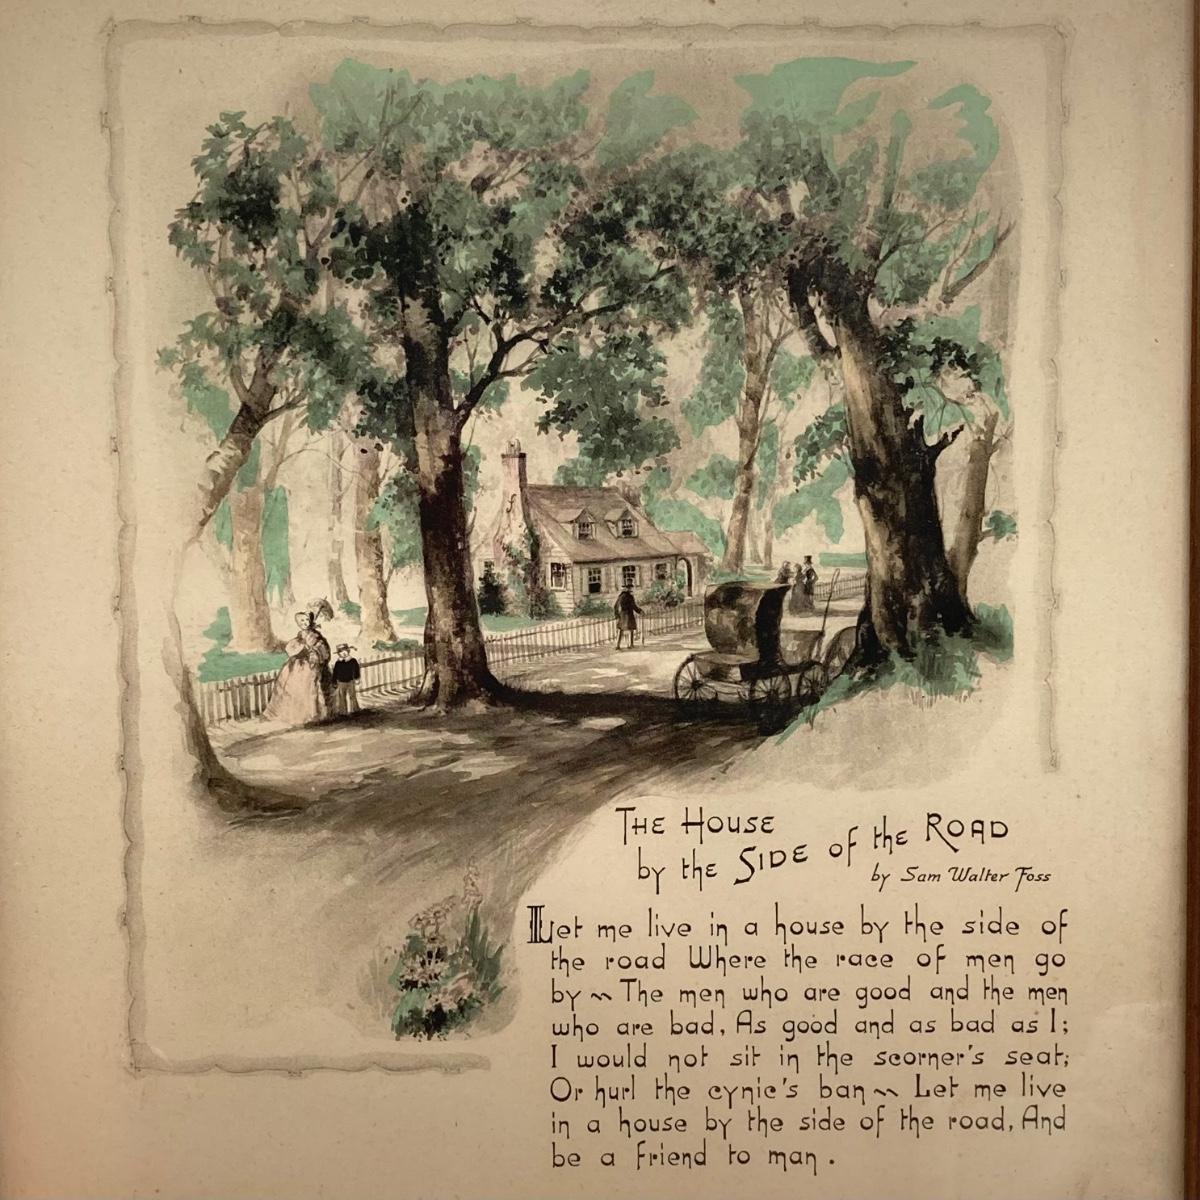 THE HOUSE
by the SIDE of the ROAD
by Sam Walter Foss
Let me live in a house by the side of
the road Where the race of men go
by ~ The men who are good and the men
who are bad, As good and as bad as I;
I would not sit in the scorner's seat;
Or hurl the cynic's ban ~ Let me live
in a house by the side of the road, And
be a friend to man.